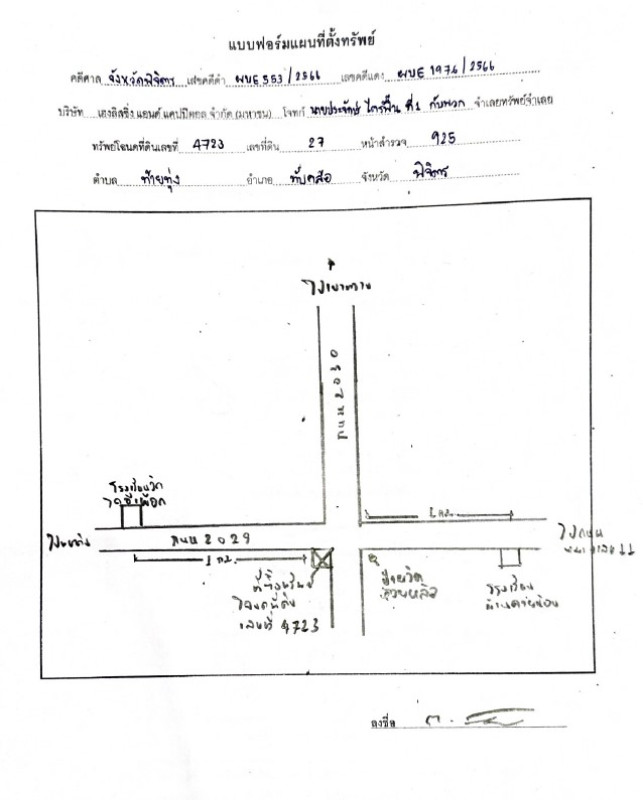 แบบฟอร์มแผนที่ตั้งทรัพย์
คดีศาล จังหวัดพิจิตร เลขคดีดำ ผบE 553/2566 เลขคดีแดง ผบE 1974/2566
บริษัท เฮงลิสซิ่ง แอนด์ แคปปิตอล จำกัด (มหาชน) โจทก์ นายประจักษ์ ที่ 1 กับพวก จำเลยทรัพย์จำเลย
ทรัพย์โฉนดที่ดินเลขที่ 4723 เลขที่ดิน 27 หน้าสำรวจ 925
ตำบล ท้ายทุ่ง อำเภอ ทับคล้อ จังหวัด พิจิตร
ไปเขาทราย
โรงเรียนวัด
1 กม.
ถนน 2029
1 กม.
ที่ตั้งทรัพย์
โฉนดที่ดิน
เลขที่ 4723
ป้ายวัด
โรงเรียน
ลงชื่อ